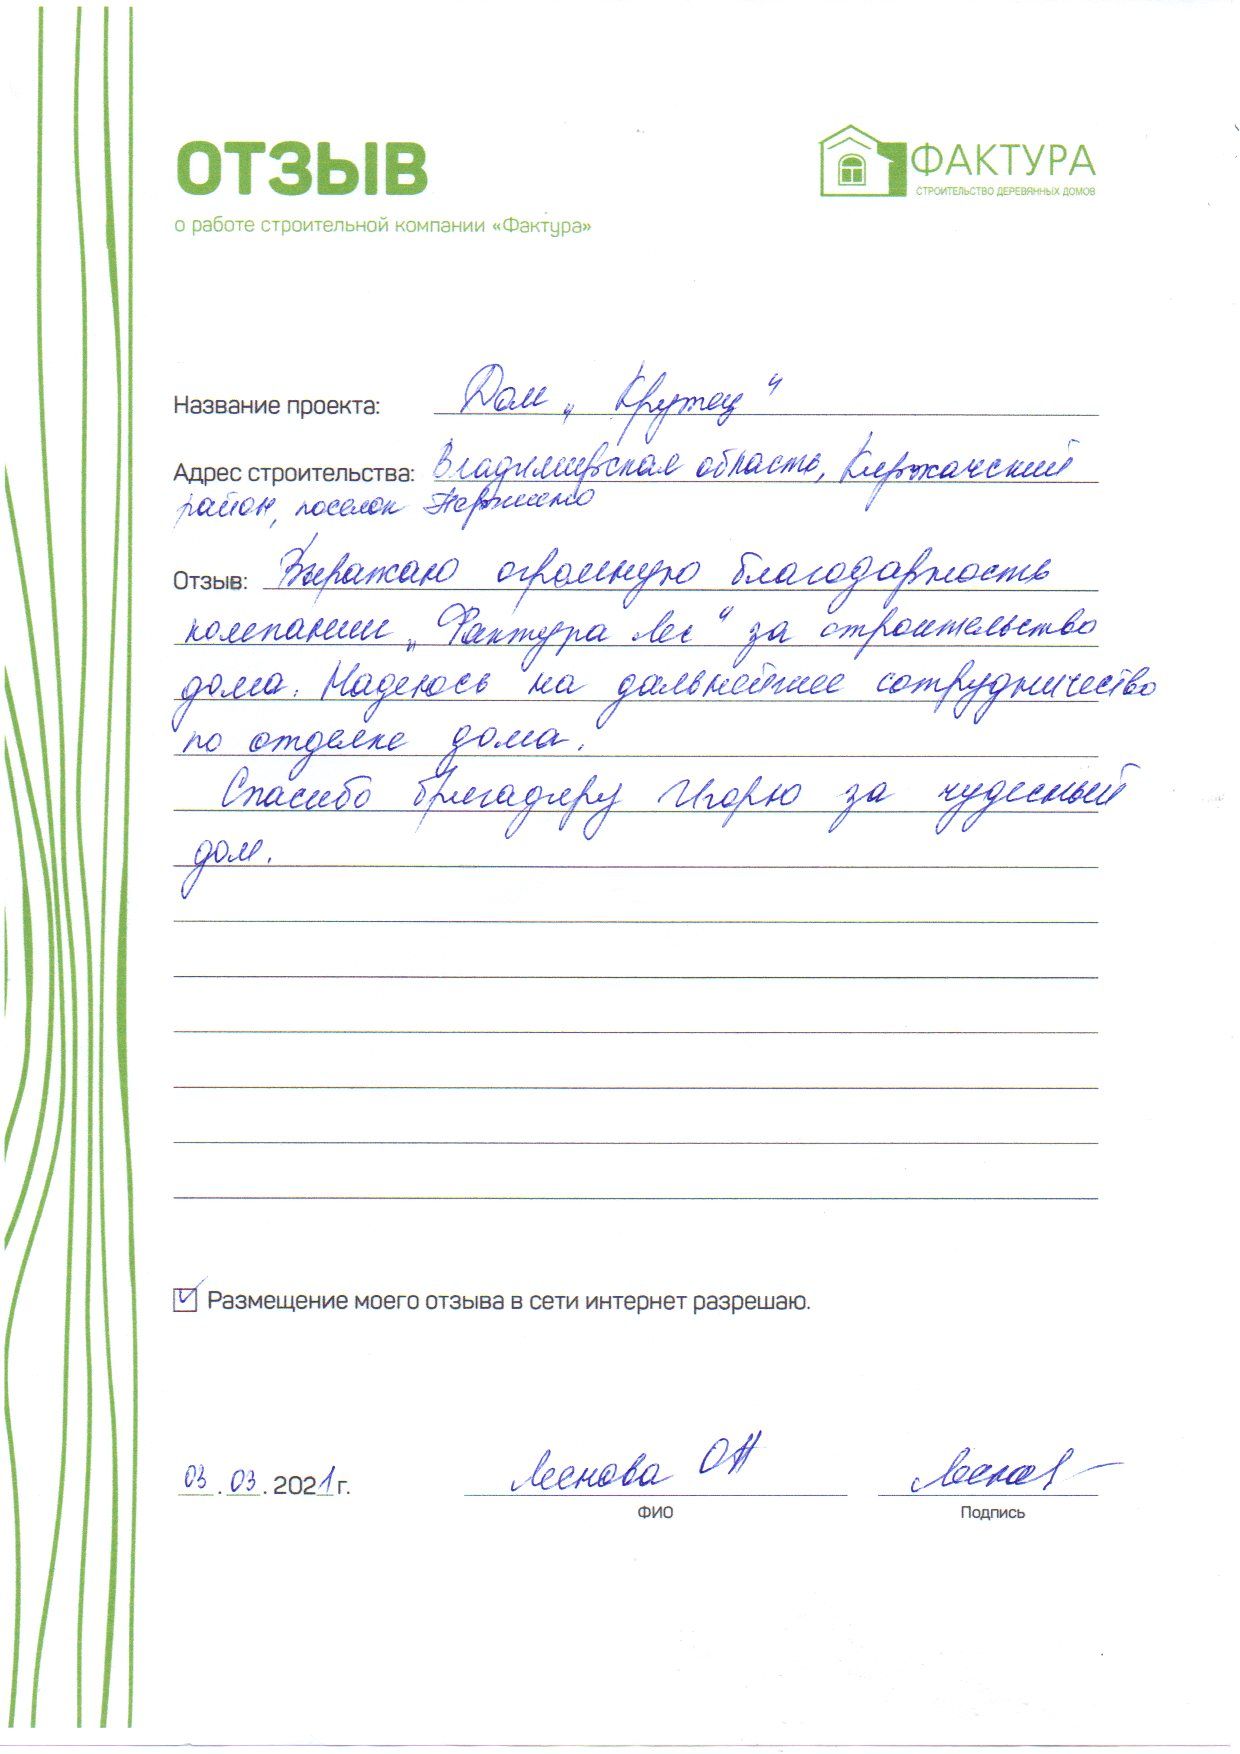 ОТЗЫВ
о работе строительной компании «Фактура»
ФАКТУРА
СТРОИТЕЛЬСТВО ДЕРЕВЯННЫХ ДОМОВ
Название проекта: Дом „Крутец“
Адрес строительства: Владимирская область, Киржачский
район, поселок
Отзыв: Выражаю огромную благодарность
компании „Фактура лес“ за строительство
дома. Надеюсь на дальнейшее сотрудничество
по отделке дома.
Спасибо бригадиру Игорю за чудесный
дом.
Размещение моего отзыва в сети интернет разрешаю.
03.03.2021 г.
ФИО
Подпись